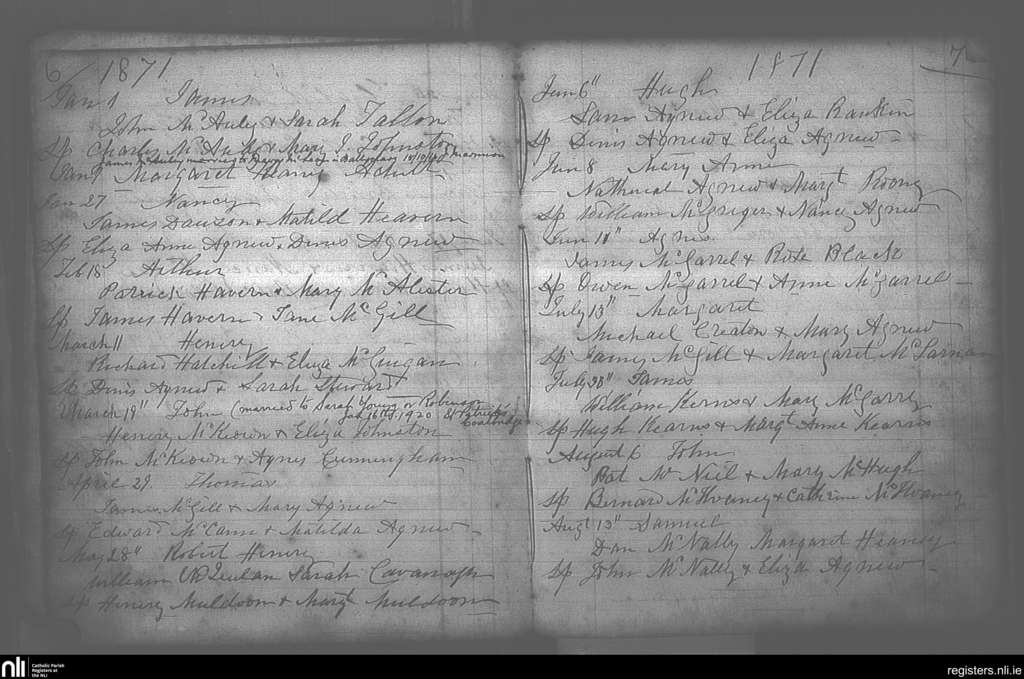 6 1871
Jan 1 James
John McAuley & Sarah Fallon
Sp Charles McAuley & Mary J. Johnston
James McAuley married to Mary in Ballyclary
Jan 9 Margaret Heany Adult
Jan 27 Nancy
James Dawson & Matild Heavern
Sp Eliza Anne Agnew & Denis Agnew
Feb 18 Arthur
Patrick Havern & Mary McAlister
Sp James Havern & Jane McGill
March 11 Henery
Richard Hatchill & Eliza McGuigan
Sp Denis Agnew & Sarah Steward
March 19" John (married to Sarah Young or Robinson
16th 1920 St Patrick's Coatbridge
Henery McKeown & Eliza Johnston
Sp John McKeown & Agnes Cunningham
April 29. Thomas
James McGill & Mary Agnew
Sp Edward McCann & Matilda Agnew
May 28" Robert Henery
William Sarah Cavanagh
Sp Henery Muldoon & Margt Muldoon
1871 7
Jun 6" Hugh
Sam Agnew & Eliza Rankin
Sp Denis Agnew & Eliza Agnew
Jun 8 Mary Anne
Nathereal Agnew & Margt Roony
Sp William McGreger & Nancy Agnew
Jun 18" Agnes.
James McGarrel & Rose Black
Sp Owen McGarrel & Anne McGarrel
July 13" Margaret
Michael Creaton & Mary Agnew
Sp James McGill & Margaret McLarnan
July 30" James
William Kerns & Mary McGarry
Sp Hugh Kearns & Margt Anne Kearns
August 6 John
Pat McNiel & Mary McHugh
Sp Bernard McIlvaney & Catherine McIlvaney
Augt 13" Samuel
Dan McNally Margaret Heaney
Sp John McNally & Eliza Agnew
nli Catholic Parish
Registers at
the NLI
registers.nli.ie